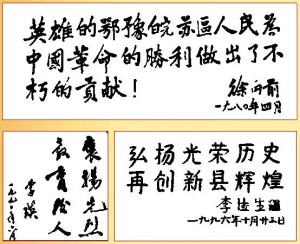 英雄的鄂豫皖苏區人民為
中國革命的勝利做出了不
朽的贡献！
徐向前
一九八〇年四月
褒揚先烈
教育後人
李瑛
弘扬光荣历史
再创新县辉煌
李德生
一九九六年十月廿三日